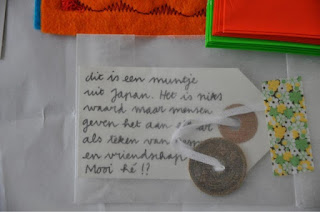 dit is een muntje
uit Japan. Het is niks
waard maar mensen
geven het aan
als teken van
en vriendschap
Mooi hé !?